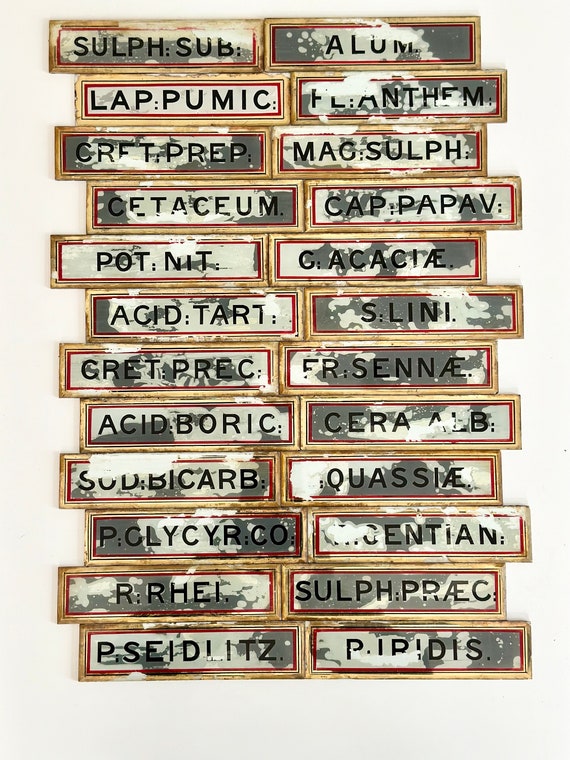 SULPH:SUB:
ALUM.
LAP:PUMIC:
FL:ANTHEM:
CRET:PREP:
MAG:SULPH:
CETACEUM.
CAP:PAPAV:
POT:NIT.
G:ACACIÆ.
ACID:TART:
S:LINI.
CRET:PREC:
FR:SENNÆ.
ACID:BORIC:
CERA ALB:
SOD:BICARB:
:QUASSIÆ.
P:GLYCYR:CO:
GENTIAN:
R:RHEI.
SULPH:PRÆC:
P:SEIDLITZ.
P:IRIDIS.